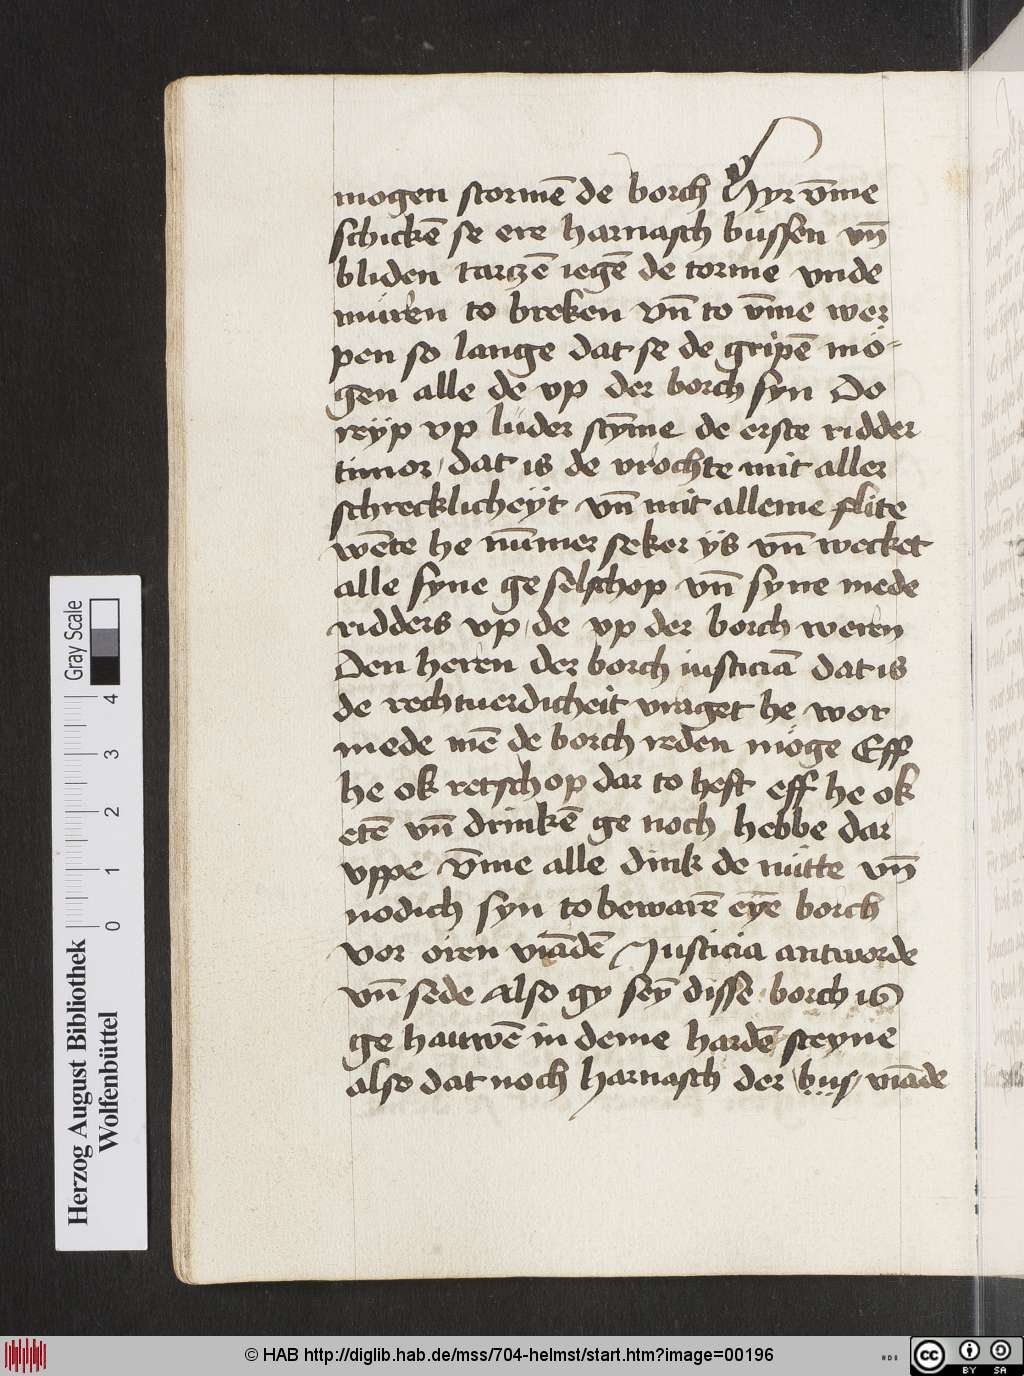 mogen stormē de borch Hyr v̄me
schickē se ere harnasch bussen vn̄
bliden tartzē iegē de torme vnde
muren to breken vn̄ to v̄me wer
pen so lange dat se de gripē mo-
gen alle de vp der borch syn Do
reÿp vp lüder stȳme de erste ridder
timor dat is de vrochte mit aller
schrecklicheÿt vn̄ mit alleme flite
wēte he nūmer seker ÿs vn̄ wecket
alle syne geselschop vn̄ syne mede
ridders vp de vp der borch weren
Den heren der borch iusticiā dat is
de rechtuerdicheit vraget he wor
mede mē de borch reden möge Eff
he ok retschop dar to heft eff he ok
etē vn̄ drinkē ge noch hebbe dar
vppe v̄me alle dink de nütte vn̄
nodich syn to bewarē eyē borch
vor oiren viādē Justicia antworde
vn̄ sede also gy seȳ disse borch is
ge hauwē in deme hardē steyne
also dat noch harnasch der bus viāde
Herzog August Bibliothek
Wolfenbüttel
0 1 2 3 4
Gray Scale
© HAB http://diglib.hab.de/mss/704-helmst/start.htm?image=00196
cc
BY SA